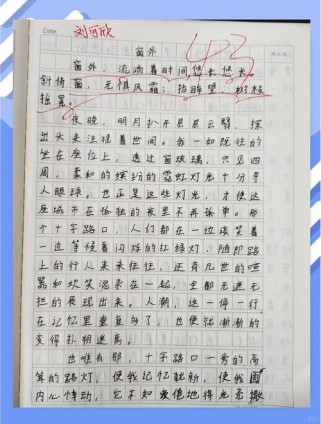 Date:
刘可欣
窗外
43
窗外，流动着时间，悠长悠长。
斜倚窗，无惧风霜；抬眸望，树枝
摇晃。
夜晚，明月扒开层层云翳，探
出头来注视着世间。我一如既往的
坐在座位上，透过窗玻璃，只见四
周，柔和的缤纷的霓虹灯光十分夺
人眼球。也正是这些灯光，才使这
座城市在孤独的夜里不再孤单。那
个十字路口，人们都在一边谈笑着
一边等候着闪烁的红绿灯，随即路
上的行人来来往往，还有几世的喧
嚣和欢笑混杂在一起，全都无遮无
拦的展现出来。人潮，这一停一行，
在记忆里重复多了，也便就渐渐的
变得扑朔迷离。
也唯有那，十字路口一旁的高
耸的路灯，使我记忆犹新，使我
内心悸动，它不知疲倦地将光柔撒